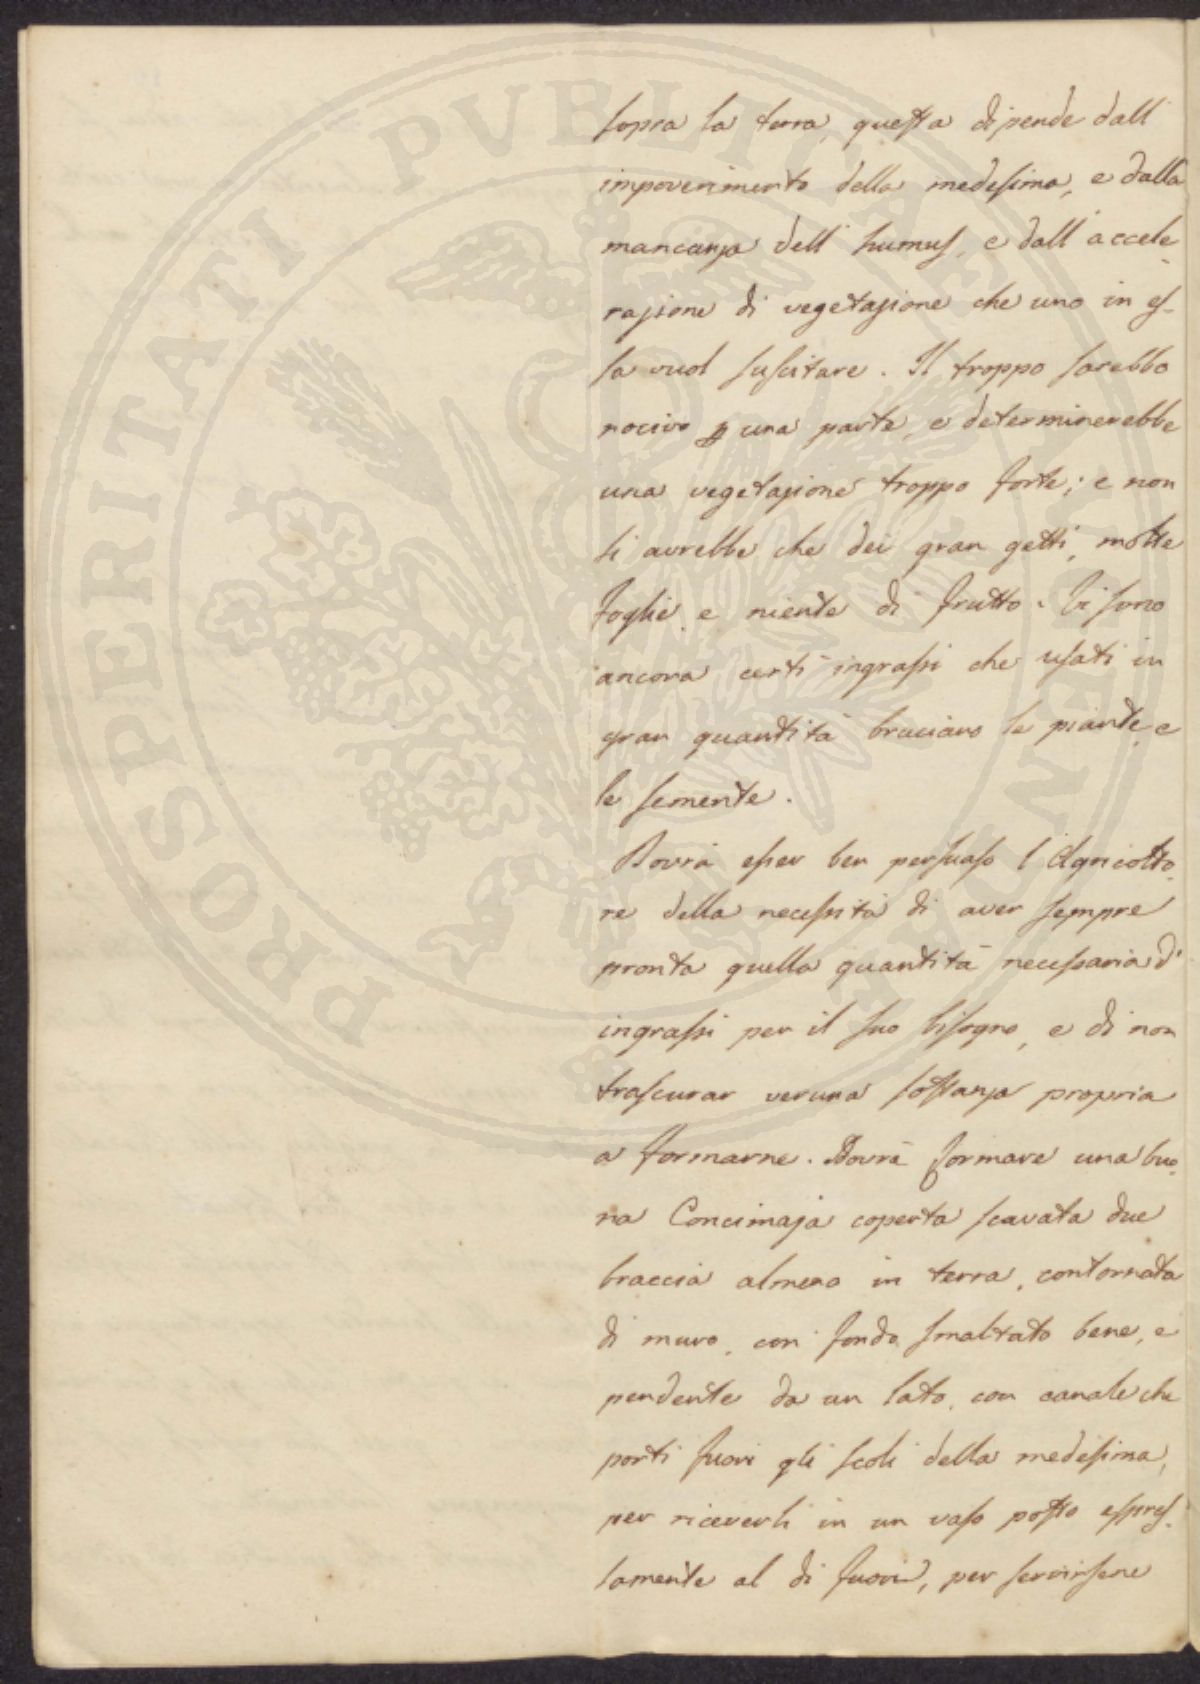 PROSPERITATI PUBLICAE AUGENDAE
sopra la terra, questa dipende dall'
impoverimento della medesima, e dalla
mancanza dell' humus, e dall' accele-
razione di vegetazione che uno in es-
sa vuol suscitare. Il troppo sarebbe
nocivo p una parte, e determinerebbe
una vegetazione troppo forte; e non
si avrebbe che dei gran getti, molte
foglie, e niente di frutto. Vi sono
ancora certi ingrassi che usati in
gran quantità bruciano le piante, e
le semente.
Dovrà esser ben persuaso l'Agricolto-
re della necessità di aver sempre
pronta quella quantità necessaria d'
ingrassi per il suo bisogno, e di non
trascurar veruna sostanza propria
a formarne. Dovrà formare una buo-
na Concimaja coperta scavata due
braccia almeno in terra, contornata
di muro, con fondo smaltato bene, e
pendente da un lato, con canale che
porti fuori gli scoli della medesima,
per riceverli in un vaso posto espres-
samente al di fuori, per servirsene